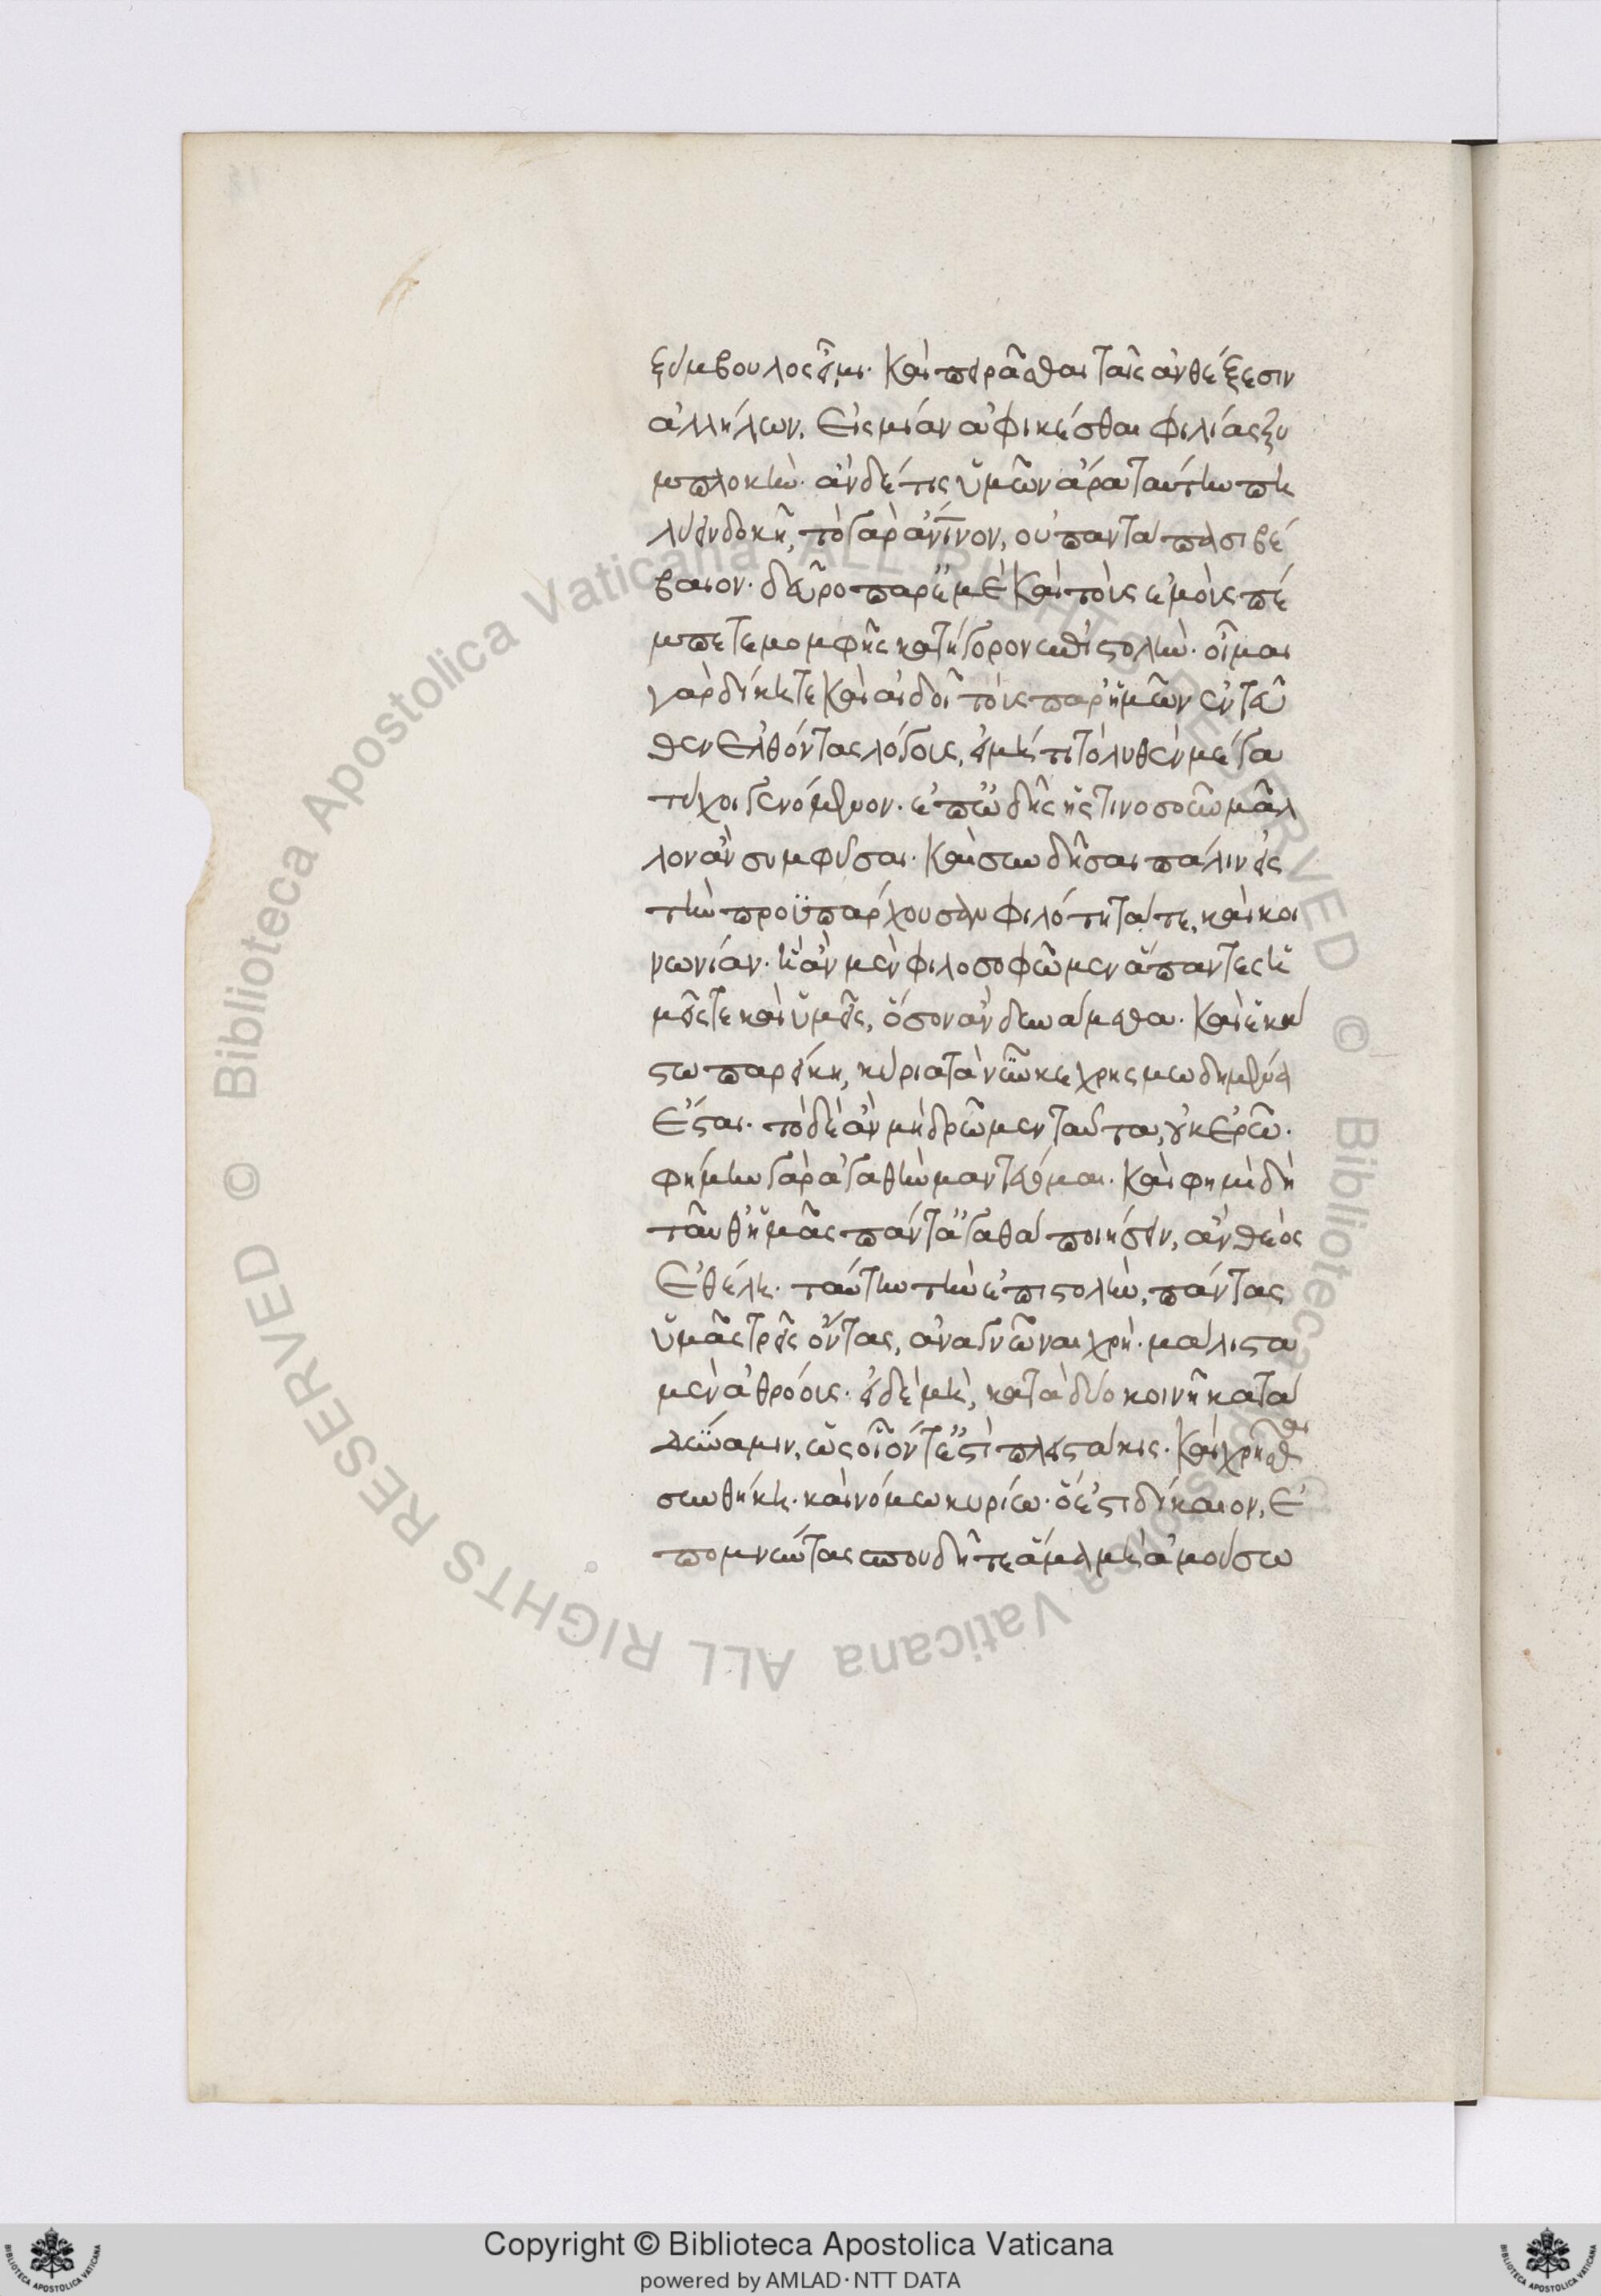 ξύμβουλος εἶμι. Καὶ πειρᾶσθαι ταῖς ἀνθέξεσιν
ἀλλήλων, Εἰς μίαν ἀφικέσθαι φιλίας ξυ
μπλοκὴν. ἀν δέ τις ὑμῶν ἄρα ταύτην πη
λύειν δοκῇ, τὸ γὰρ ἀνίνον, οὐ πανταπασι βέ
βαιον. δεῦρο παρ' ἐμὲ Καὶ τοὺς ἐμοὺς πέ
μπετε μομφῆς κατήγορον ἐπιστολὴν. οἶμαι
γὰρ δίκη τε Καὶ αἰδοῖ τοὺς παρ' ἡμῶν ἐντεῦ
θεν Ελθόντας λόγους, εἰ μή τι τὸ λυθὲν μέγα
τύχοι γενόμενον. ἐπῳδῆς ἧς τινοσοῦν μᾶλ
λον ἂν συμφῦσαι. Καὶ συνδῆσαι πάλιν εἰς
τὴν προϋπάρχουσαν φιλότητά τε, καὶ κοι
νωνίαν. ἣ ἂν μὲν φιλοσοφῶμεν ἅπαντες ἡ
μεῖς τε καὶ ὑμεῖς, ὅσον ἂν δυναίμεθα. Καὶ ἑκά
στω παρείκη, κύρια τὰ νῦν κεχρησμωδημένα
Ἔσται. τὸ δὲ ἂν μὴ δρῶμεν ταῦτα, οὐκ ἐρῶ.
φήμην γὰρ ἀγαθὴν μαντεύομαι. Καὶ φημὶ δὴ
ταῦθ' ἡμᾶς πάντα ἀγαθὰ ποιήσειν, ἀν θεὸς
Ἐθέλη. ταύτην τὴν ἐπιστολὴν, πάντας
ὑμᾶς τρεῖς ὄντας, ἀναγνῶναι χρὴ. μάλιστα
μὲν ἀθρόους. εἰ δὲ μὴ, κατὰ δύο κοινῇ κατὰ
δύναμιν, ὡς οἷον τέ ἐστὶ πλειστάκις. Καὶ χρῆσθαι
συνθήκη. καὶ νόμω κυρίω. ὅ ἐστι δίκαιον, Ἐ
πομνύντας σπουδῇ τε ἅμα μὴ ἀμούσω